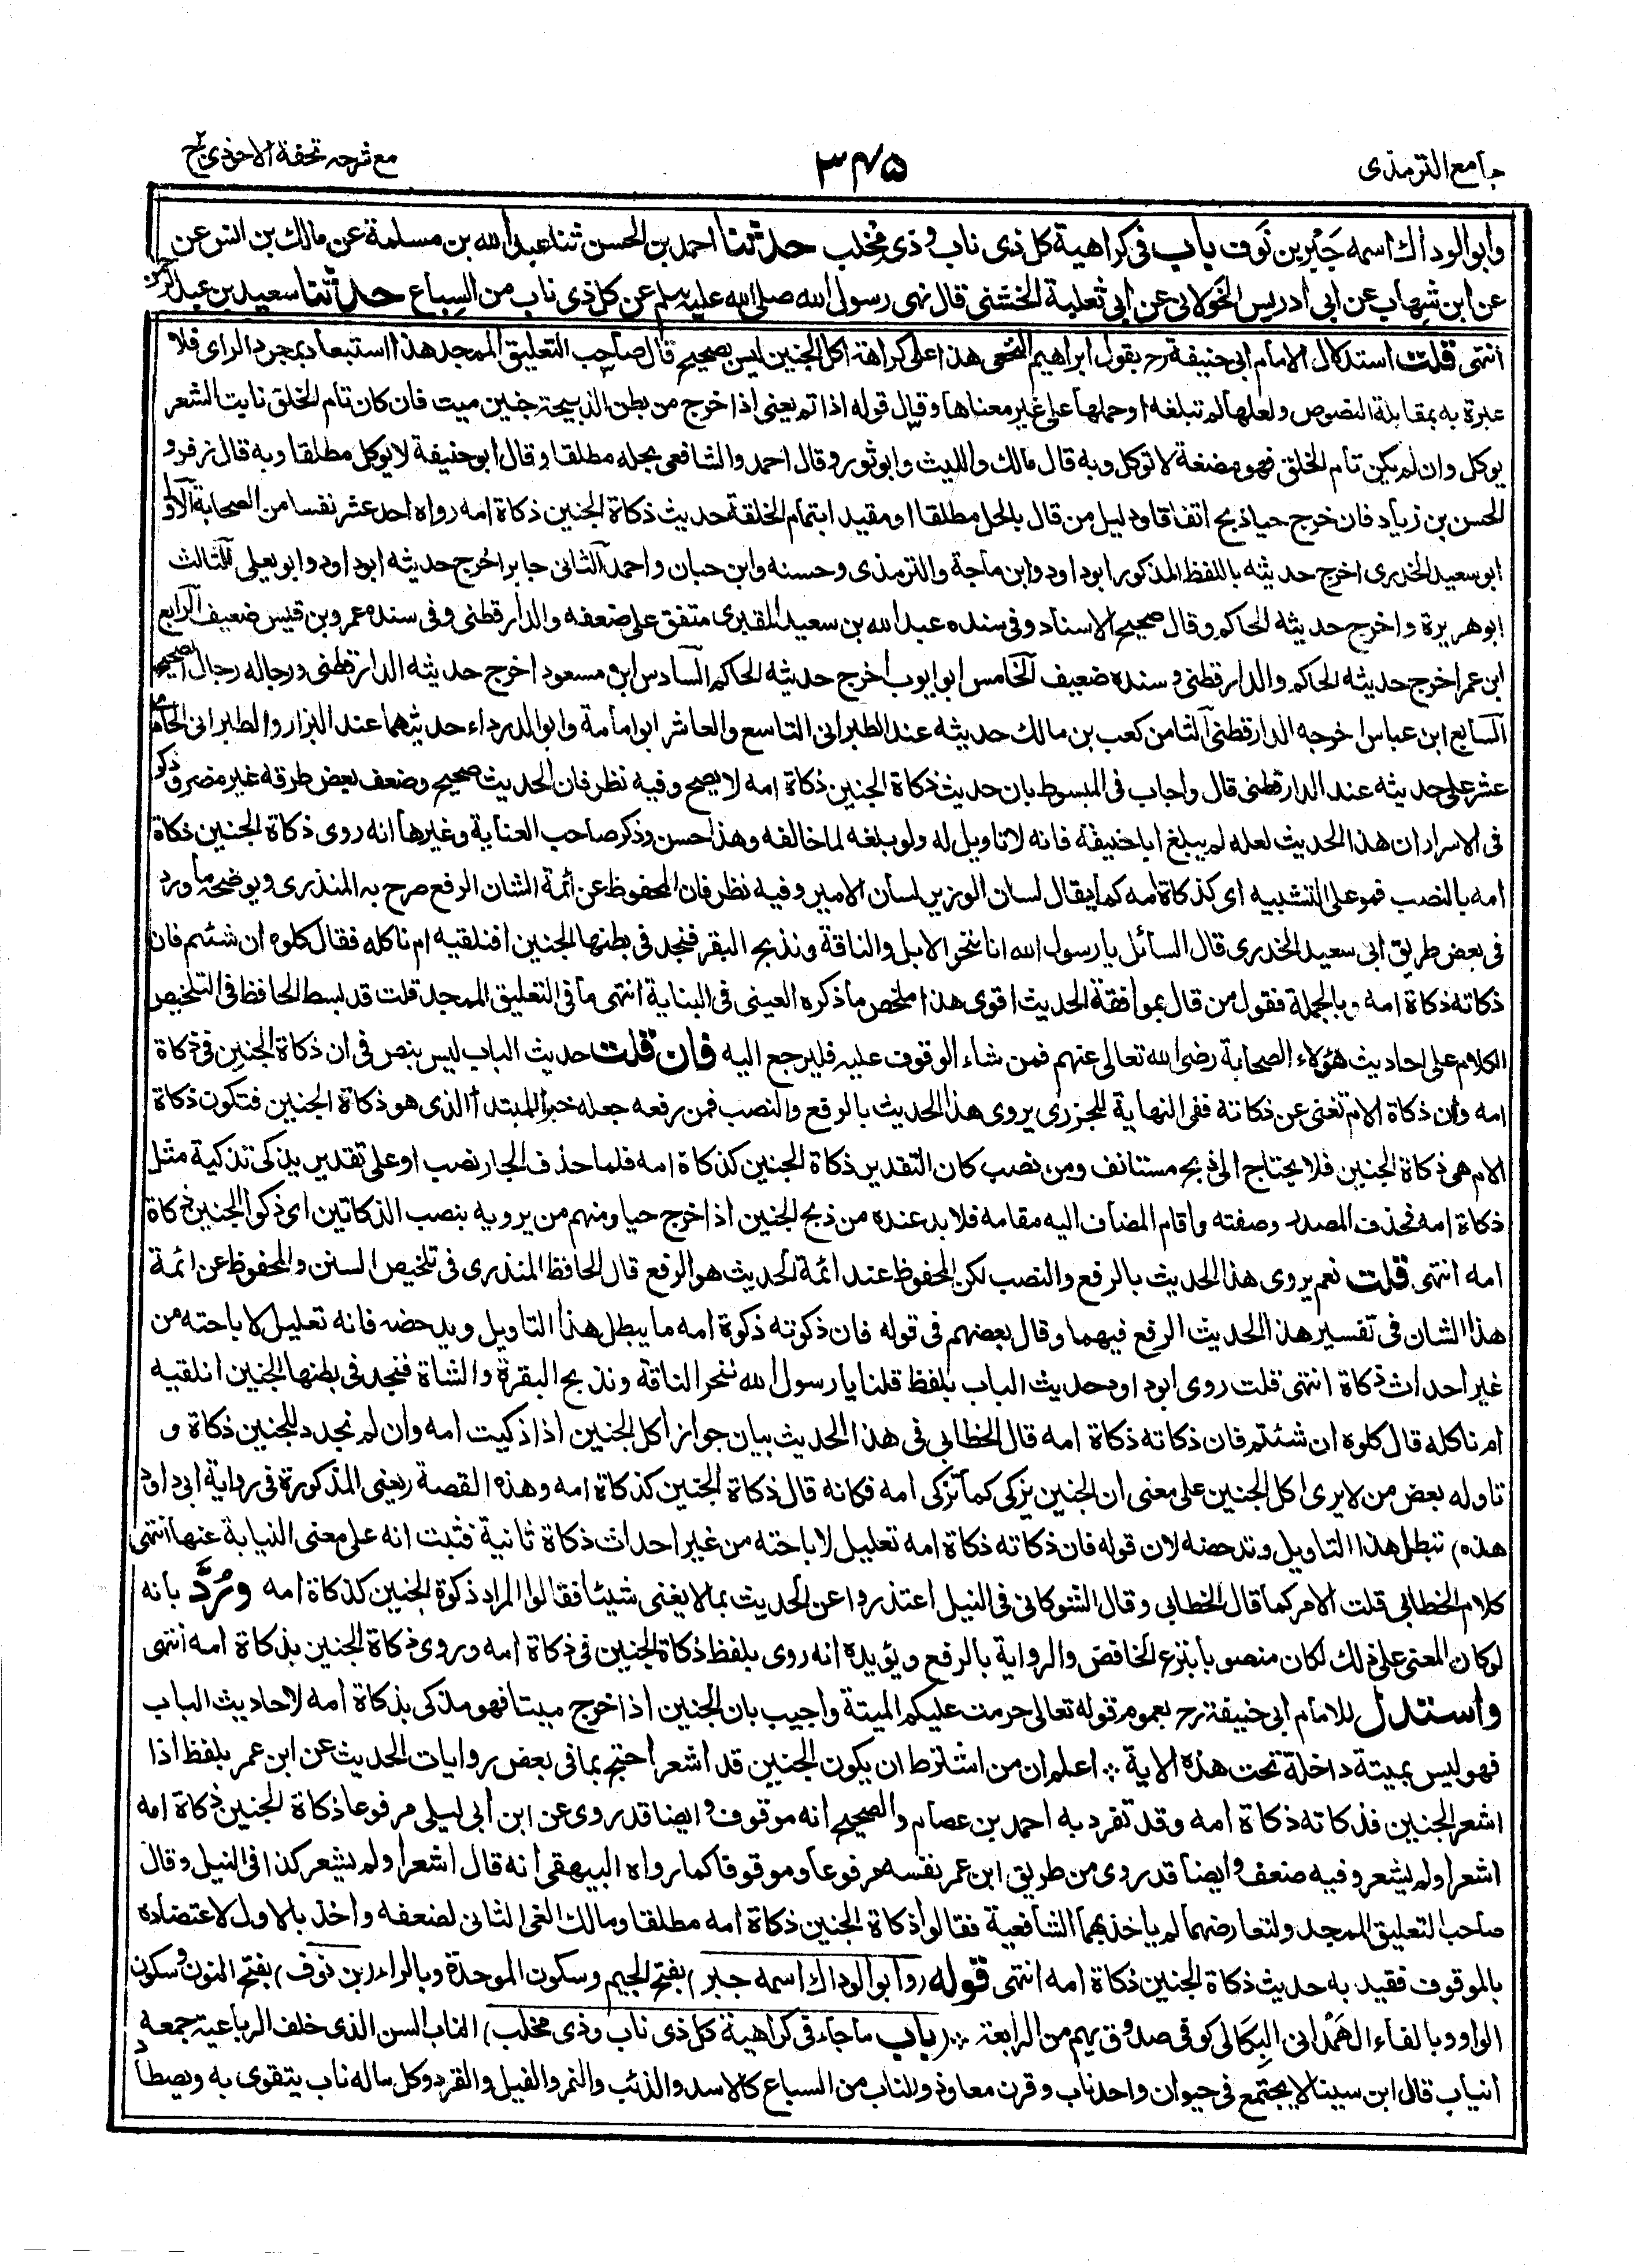 جامع الترمذی
۳۴۵
مع شرحه تحفة الاحوذی ج۲
وابو الوداك اسمه جَبْر بن نَوف باب فی كراهية كل ذی ناب وذی مِخلب حدثنا احمد بن الحسن ثنا عبد الله بن مسلمة عن مالك بن انس عن
عن ابن شهاب عن ابی ادريس الخولانی عن ابی ثعلبة الخشنی قال نهی رسول الله صلی الله عليه وسلم عن كل ذی ناب من السباع حدثنا سعيد بن عبد الرحمن
انتهى قلت استدلال الامام ابی حنيفة رح بقول ابراهيم النخعی هذا علی كراهة اكل الجنين ليس بصحيح قال صاحب التعليق الممجد هذا استبعاد بمجرد الرای فلا
عبرة به بمقابلة النصوص ولعلها لم تبلغه او حملها علی غير معناها وقال قوله اذا تم يعنی اذا خرج من بطن الذبيحة جنين ميت فان كان تام الخلق نابت الشعر
يوكل وان لم يكن تام الخلق فهو مضغة لا توكل وبه قال مالك والليث وابو ثور وقال احمد والشافعی يحله مطلقا وقال ابو حنيفة لا يوكل مطلقا وبه قال زفر و
الحسن بن زياد فان خرج حيا ذبح اتفاقا ودليل من قال بالحل مطلقا او مقيد ابتمام الخلقة حديث ذكاة الجنين ذكاة امه رواه احد عشر نفسا من الصحابة الاول
ابو سعيد الخدری اخرج حديثه باللفظ المذكور ابو داود وابن ماجة والترمذی وحسنه وابن حبان واحمد الثانی جابر اخرج حديثه ابو داود وابو يعلی الثالث
ابو هريرة واخرج حديثه الحاكم وقال صحيح الاسناد وفی سنده عبد الله بن سعيد المقبری متفق علی ضعفه والدارقطنی وفی سنده عمرو بن قيس ضعيف الرابع
ابن عمر اخرج حديثه الحاكم والدارقطنی وسنده ضعيف الخامس ابو ايوب اخرج حديثه الحاكم السادس ابن مسعود اخرج حديثه الدارقطنی ورجاله رجال الصحيح
السابع ابن عباس اخرجه الدارقطنی الثامن كعب بن مالك حديثه عند الطبرانی التاسع والعاشر ابو امامة وابو الدرداء حديثهما عند البزار والطبرانی الحادی
عشر علی حديثه عند الدارقطنی قال واجاب فی المبسوط بان حديث ذكاة الجنين ذكاة امه لا يصح وفيه نظر فان الحديث صحيح وضعف بعض طرقه غير مضر وذكر
فی الاسرار ان هذا الحديث لعله لم يبلغ ابا حنيفة فانه لا تاويل له ولو بلغه لما خالفه وهذا حسن وذكر صاحب العناية وغيرها انه روی ذكاة الجنين ذكاة
امه بالنصب فهو علی التشبيه ای كذكاة امه كما يقال لسان الوزير لسان الامير وفيه نظر فان المحفوظ عن ائمة الشان الرفع صرح به المنذری ويوضحه ما ورد
فی بعض طريق ابی سعيد الخدری قال السائل يا رسول الله انا ننحر الابل والناقة ونذبح البقر فنجد فی بطنها الجنين افنلقيه ام ناكله فقال كلوه ان شئتم فان
ذكاته ذكاة امه وبالجملة فقول من قال بموافقة الحديث اقوی هذا ملخص ما ذكره العينی فی البناية انتهى ما فی التعليق الممجد قلت قد بسط الحافظ فی التلخيص
الكلام علی احاديث هؤلاء الصحابة رضی الله تعالی عنهم فمن شاء الوقوف عليه فليرجع اليه فان قلت حديث الباب ليس بنص فی ان ذكاة الجنين فی ذكاة
امه وان ذكاة الام تغنی عن ذكاته ففی النهاية للجزری يروی هذا الحديث بالرفع والنصب فمن رفعه جعله خبر المبتدا الذی هو ذكاة الجنين فتكون ذكاة
الام هی ذكاة الجنين فلا يحتاج الی ذبح مستانف ومن نصب كان التقدير ذكاة الجنين كذكاة امه فلما حذف الجار نصب او علی تقدير يذكی تذكية مثل
ذكاة امه فحذف المصدر وصفته واقام المضاف اليه مقامه فلا بد عنده من ذبح الجنين اذا خرج حيا ومنهم من يرويه بنصب الذكاتين ای ذكوا الجنين ذكاة
امه انتهى قلت نعم يروی هذا الحديث بالرفع والنصب لكن المحفوظ عند ائمة الحديث هو الرفع قال الحافظ المنذری فی تلخيص السنن والمحفوظ عن ائمة
هذا الشان فی تفسير هذا الحديث الرفع فيهما وقال بعضهم فی قوله فان ذكوته ذكوة امه ما يبطل هذا التاويل ويدحضه فانه تعليل لاباحته من
غير احداث ذكاة انتهى قلت روی ابو داود حديث الباب بلفظ قلنا يا رسول الله ننحر الناقة ونذبح البقرة والشاة فنجد فی بطنها الجنين انلقيه
ام ناكله قال كلوه ان شئتم فان ذكاته ذكاة امه قال الخطابی فی هذا الحديث بيان جواز اكل الجنين اذا ذكيت امه وان لم نجدد للجنين ذكاة و
تاوله بعض من لا يری اكل الجنين علی معنی ان الجنين يزكی كما تزكی امه فكانه قال ذكاة الجنين كذكاة امه وهذه القصة (يعنی المذكورة فی رواية ابی داود
هذه) تبطل هذا التاويل وتدحضه لان قوله فان ذكاته ذكاة امه تعليل لاباحته من غير احداث ذكاة ثانية فثبت انه علی معنی النيابة عنها انتهى
كلام الخطابی قلت الامر كما قال الخطابی وقال الشوكانی فی النيل اعتذروا عن الحديث بما لا يغنی شيئا فقالوا المراد ذكوة الجنين كذكاة امه ورُدَّ بانه
لو كان المعنی علی ذلك لكان منصوبا بنزع الخافض والرواية بالرفع ويؤيده انه روی بلفظ ذكاة الجنين فی ذكاة امه وروی ذكاة الجنين بذكاة امه انتهى
واستدل للامام ابی حنيفة رح بعموم قوله تعالی حرمت عليكم الميتة واجيب بان الجنين اذا خرج ميتا فهو مذكی بذكاة امه لاحاديث الباب
فهو ليس بميتة داخلة تحت هذه الاية ؞ اعلم ان من اشترط ان يكون الجنين قد اشعر احتج بما فی بعض روايات الحديث عن ابن عمر بلفظ اذا
اشعر الجنين فذكاته ذكاة امه وقد تفرد به احمد بن عصام والصحيح انه موقوف وايضا قد روی عن ابن ابی ليلی مرفوعا ذكاة الجنين ذكاة امه
اشعر اولم يشعر وفيه ضعف وايضا قد روی من طريق ابن عمر نفسه مرفوعا وموقوفا كما رواه البيهقی انه قال اشعر اولم يشعر كذا فی النيل وقال
صاحب التعليق الممجد ولتعارضهما لم ياخذ بهما الشافعية فقالوا ذكاة الجنين ذكاة امه مطلقا ومالك الغی الثانی لضعفه واخذ بالاول لاعتضاده
بالموقوف فقيد به حديث ذكاة الجنين ذكاة امه انتهى قوله (وابو الوداك اسمه جبر) بفتح الجيم وسكون الموحدة وبالراء (بن نوف) بفتح النون وسكون
الواو وبالفاء الهَمْدانی البِكالی كوفی صدوق يهم من الرابعة ؞ (باب ما جاء فی كراهية كل ذی ناب وذی مخلب) الناب السن الذی خلف الرباعية جمعه
انياب قال ابن سينا لا يجتمع فی حيوان واحد ناب وقرن معا وذو الناب من السباع كالاسد والذئب والنمر والفيل والقرد وكل ماله ناب يتقوی به ويصطاد